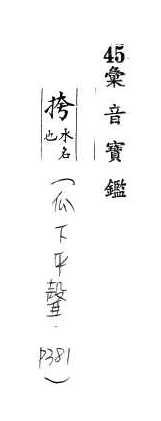 45彙音寶鑑
挎水名也
(瓜下平聲. P381)